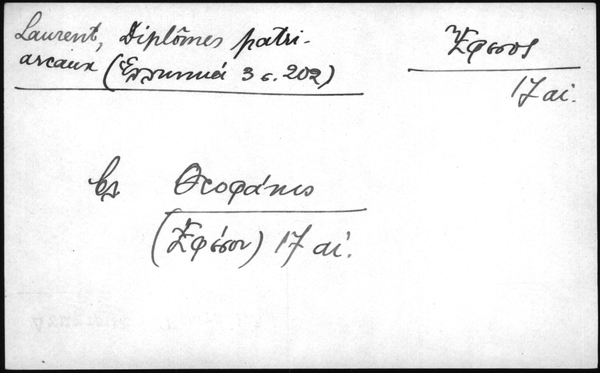 Laurent, Diplômes patri-
arcaux (Ελληνικά 3 σ. 202)
Ἔφεσος
17 αἰ.
βλ Θεοφάνης
(Ἐφέσου) 17 αἰ.